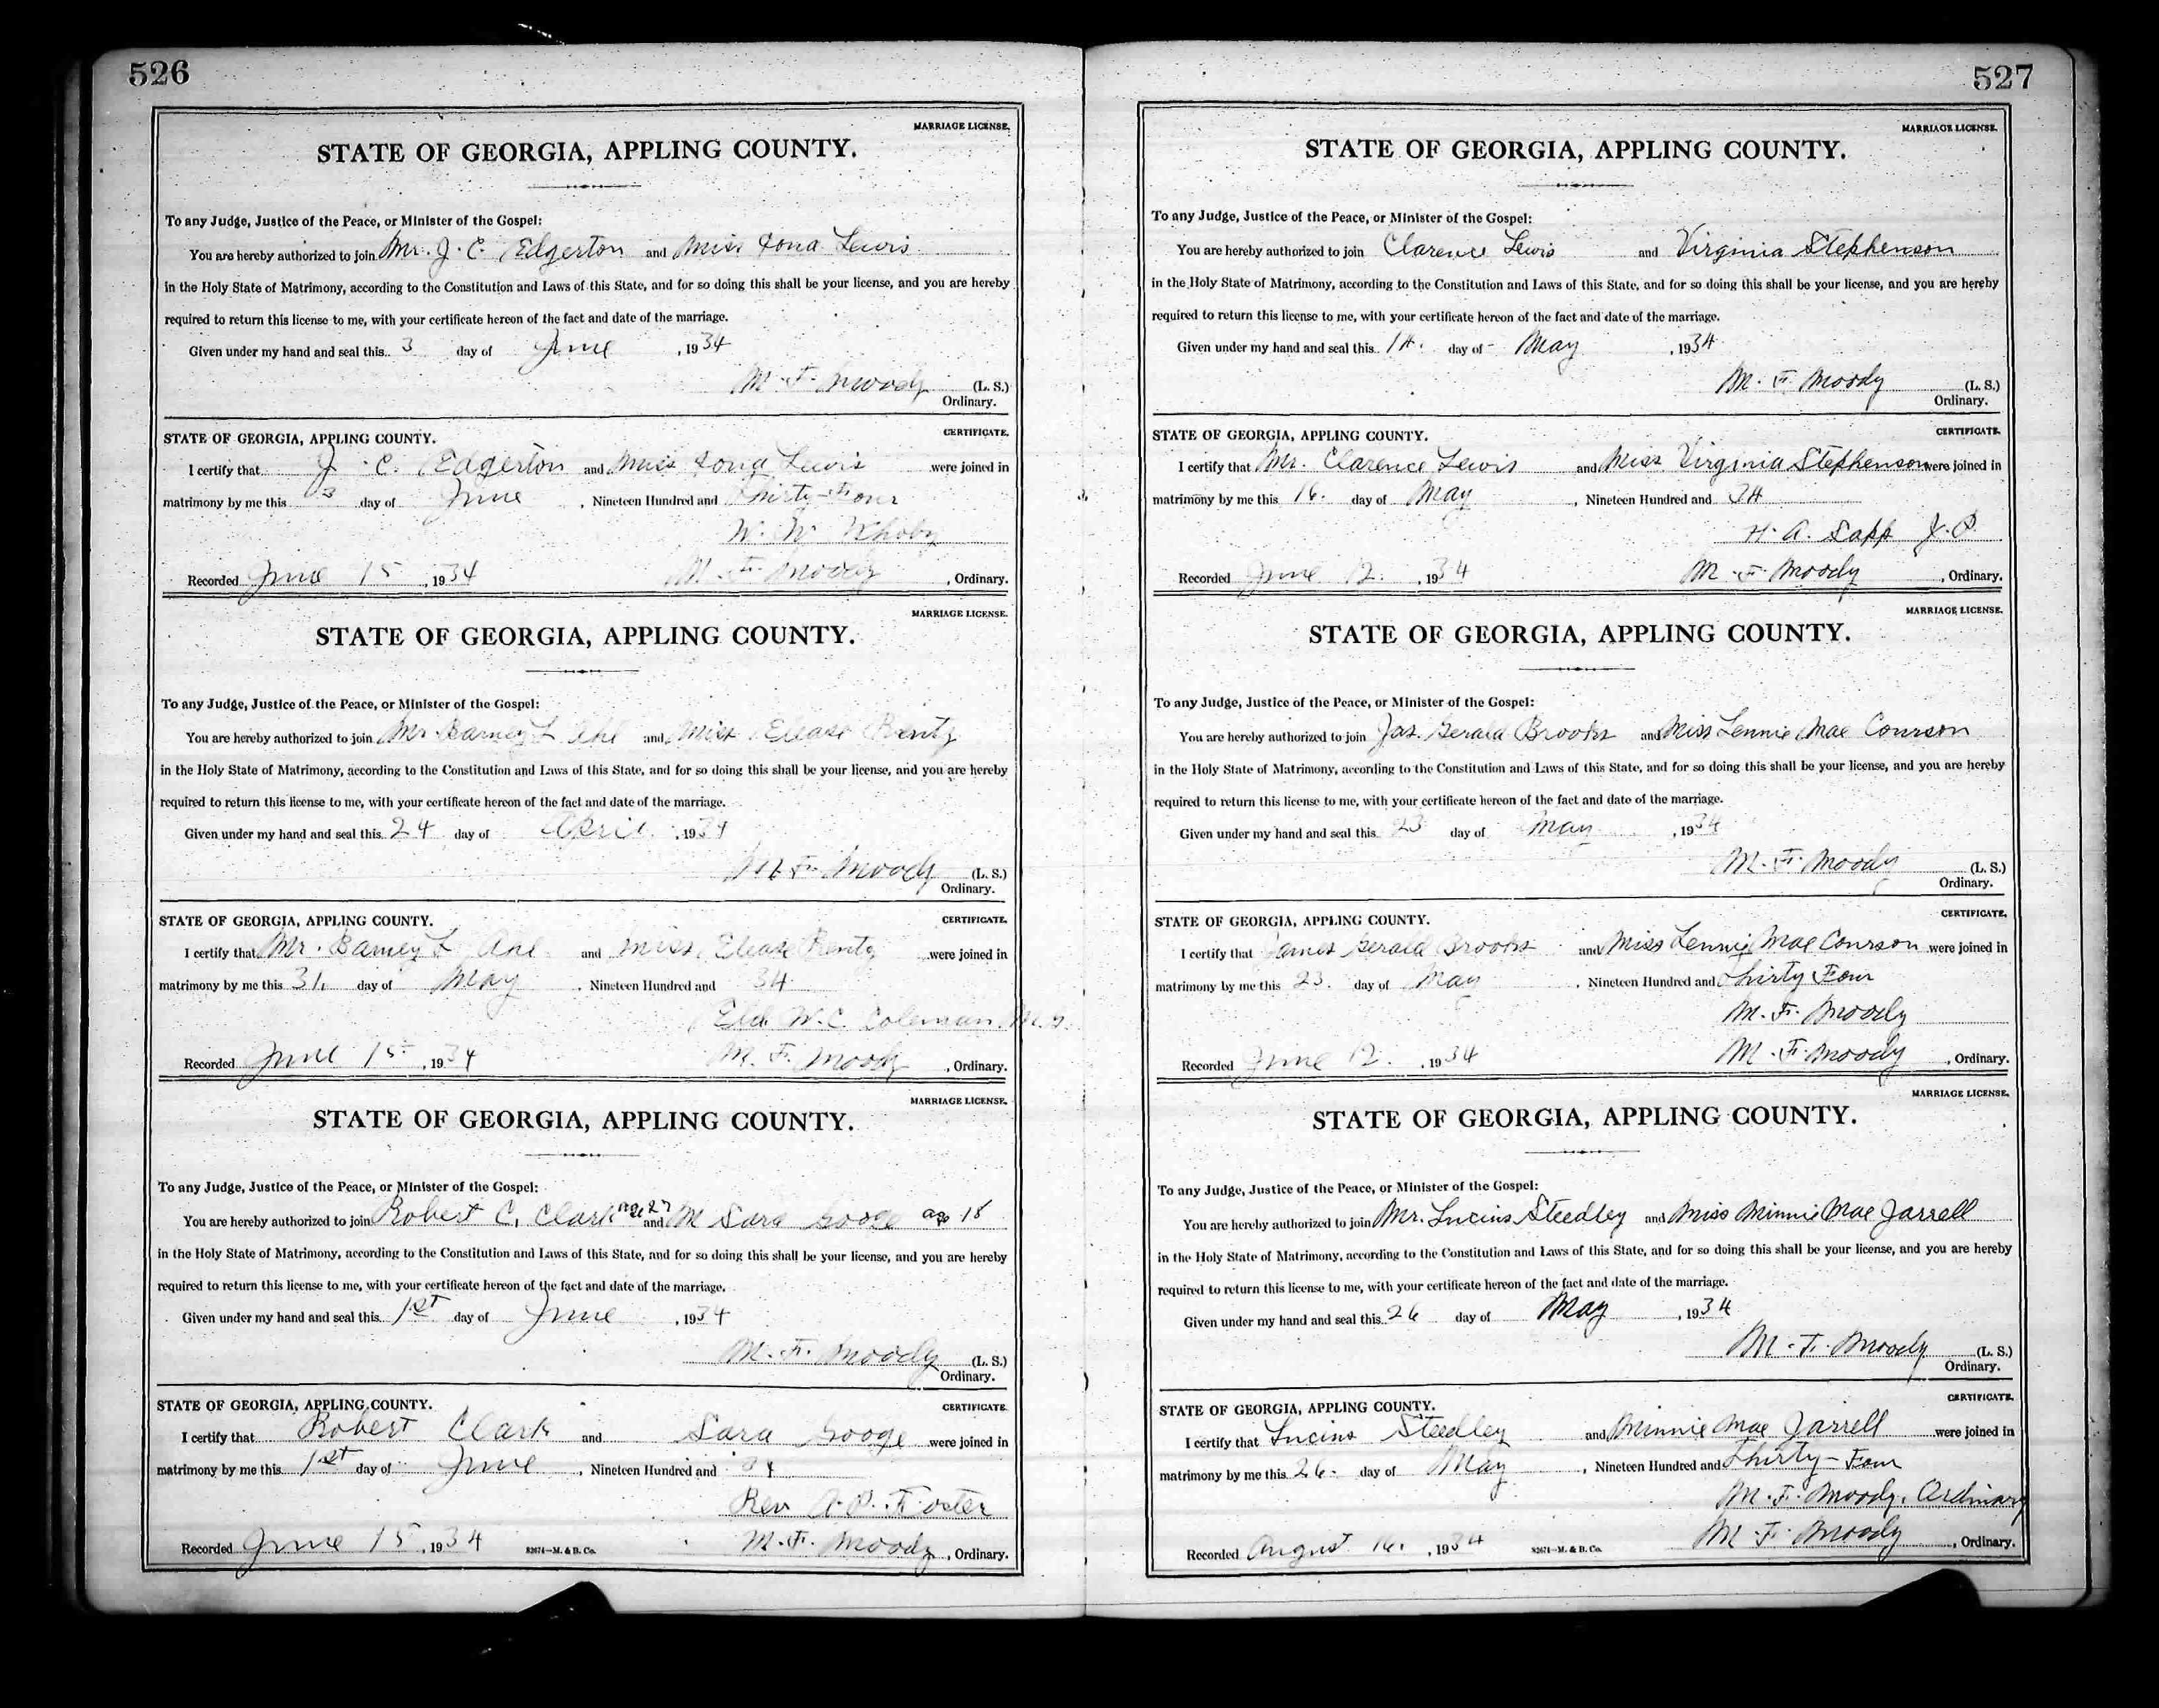 526
MARRIAGE LICENSE.
STATE OF GEORGIA, APPLING COUNTY.
To any Judge, Justice of the Peace, or Minister of the Gospel:
You are hereby authorized to join Mr. J. C. Edgerton and Miss Iona Lewis
in the Holy State of Matrimony, according to the Constitution and Laws of this State, and for so doing this shall be your license, and you are hereby
required to return this license to me, with your certificate hereon of the fact and date of the marriage.
Given under my hand and seal this 3 day of June, 1934
M. F. Moody (L. S.)
Ordinary.
STATE OF GEORGIA, APPLING COUNTY. CERTIFICATE.
I certify that J. C. Edgerton and Miss Iona Lewis were joined in
matrimony by me this 3 day of June, Nineteen Hundred and Thirty-Four
W. W.
Recorded June 15, 1934 M. F. Moody, Ordinary.
MARRIAGE LICENSE.
STATE OF GEORGIA, APPLING COUNTY.
To any Judge, Justice of the Peace, or Minister of the Gospel:
You are hereby authorized to join Mr. Barney L and Miss Elease Rentz
in the Holy State of Matrimony, according to the Constitution and Laws of this State, and for so doing this shall be your license, and you are hereby
required to return this license to me, with your certificate hereon of the fact and date of the marriage.
Given under my hand and seal this 24 day of April, 1934
M. F. Moody (L. S.)
Ordinary.
STATE OF GEORGIA, APPLING COUNTY. CERTIFICATE.
I certify that Mr. Barney L and Miss Elease Rentz were joined in
matrimony by me this 31, day of May, Nineteen Hundred and 34
Eld. W. C. Coleman. M. G.
Recorded June 15, 1934 M. F. Moody, Ordinary.
MARRIAGE LICENSE.
STATE OF GEORGIA, APPLING COUNTY.
To any Judge, Justice of the Peace, or Minister of the Gospel:
You are hereby authorized to join Robert C. Clark age 27 and M Sara Googe age 18
in the Holy State of Matrimony, according to the Constitution and Laws of this State, and for so doing this shall be your license, and you are hereby
required to return this license to me, with your certificate hereon of the fact and date of the marriage.
Given under my hand and seal this 1st day of June, 1934
M. F. Moody (L. S.)
Ordinary.
STATE OF GEORGIA, APPLING COUNTY. CERTIFICATE.
I certify that Robert Clark and Sara Googe were joined in
matrimony by me this 1st day of June, Nineteen Hundred and 34
Rev A. P. Foster
Recorded June 15, 1934 82674—M. & B. Co. M. F. Moody, Ordinary.
527
MARRIAGE LICENSE.
STATE OF GEORGIA, APPLING COUNTY.
To any Judge, Justice of the Peace, or Minister of the Gospel:
You are hereby authorized to join Clarence Lewis and Virginia Stephenson
in the Holy State of Matrimony, according to the Constitution and Laws of this State, and for so doing this shall be your license, and you are hereby
required to return this license to me, with your certificate hereon of the fact and date of the marriage.
Given under my hand and seal this 14. day of May, 1934
M. F. Moody (L. S.)
Ordinary.
STATE OF GEORGIA, APPLING COUNTY. CERTIFICATE.
I certify that Mr. Clarence Lewis and Miss Virginia Stephenson were joined in
matrimony by me this 16. day of May, Nineteen Hundred and 34
H. A. Sapp J. P.
Recorded June 12., 1934 M. F. Moody, Ordinary.
MARRIAGE LICENSE.
STATE OF GEORGIA, APPLING COUNTY.
To any Judge, Justice of the Peace, or Minister of the Gospel:
You are hereby authorized to join Jas. Gerald Brooks and Miss Lennie Mae Courson
in the Holy State of Matrimony, according to the Constitution and Laws of this State, and for so doing this shall be your license, and you are hereby
required to return this license to me, with your certificate hereon of the fact and date of the marriage.
Given under my hand and seal this 23 day of May, 1934
M. F. Moody (L. S.)
Ordinary.
STATE OF GEORGIA, APPLING COUNTY. CERTIFICATE.
I certify that James Gerald Brooks and Miss Lennie Mae Courson were joined in
matrimony by me this 23. day of May, Nineteen Hundred and Thirty Four
M. F. Moody
Recorded June 12., 1934 M. F. Moody, Ordinary.
MARRIAGE LICENSE.
STATE OF GEORGIA, APPLING COUNTY.
To any Judge, Justice of the Peace, or Minister of the Gospel:
You are hereby authorized to join Mr. Lucius Steedley and Miss Minnie Mae Jarrell
in the Holy State of Matrimony, according to the Constitution and Laws of this State, and for so doing this shall be your license, and you are hereby
required to return this license to me, with your certificate hereon of the fact and date of the marriage.
Given under my hand and seal this 26 day of May, 1934
M. F. Moody (L. S.)
Ordinary.
STATE OF GEORGIA, APPLING COUNTY. CERTIFICATE.
I certify that Lucius Steedley and Minnie Mae Jarrell were joined in
matrimony by me this 26. day of May, Nineteen Hundred and Thirty-Four
M. F. Moody, Ordinary
Recorded August 16., 1934 82674—M. & B. Co. M. F. Moody, Ordinary.